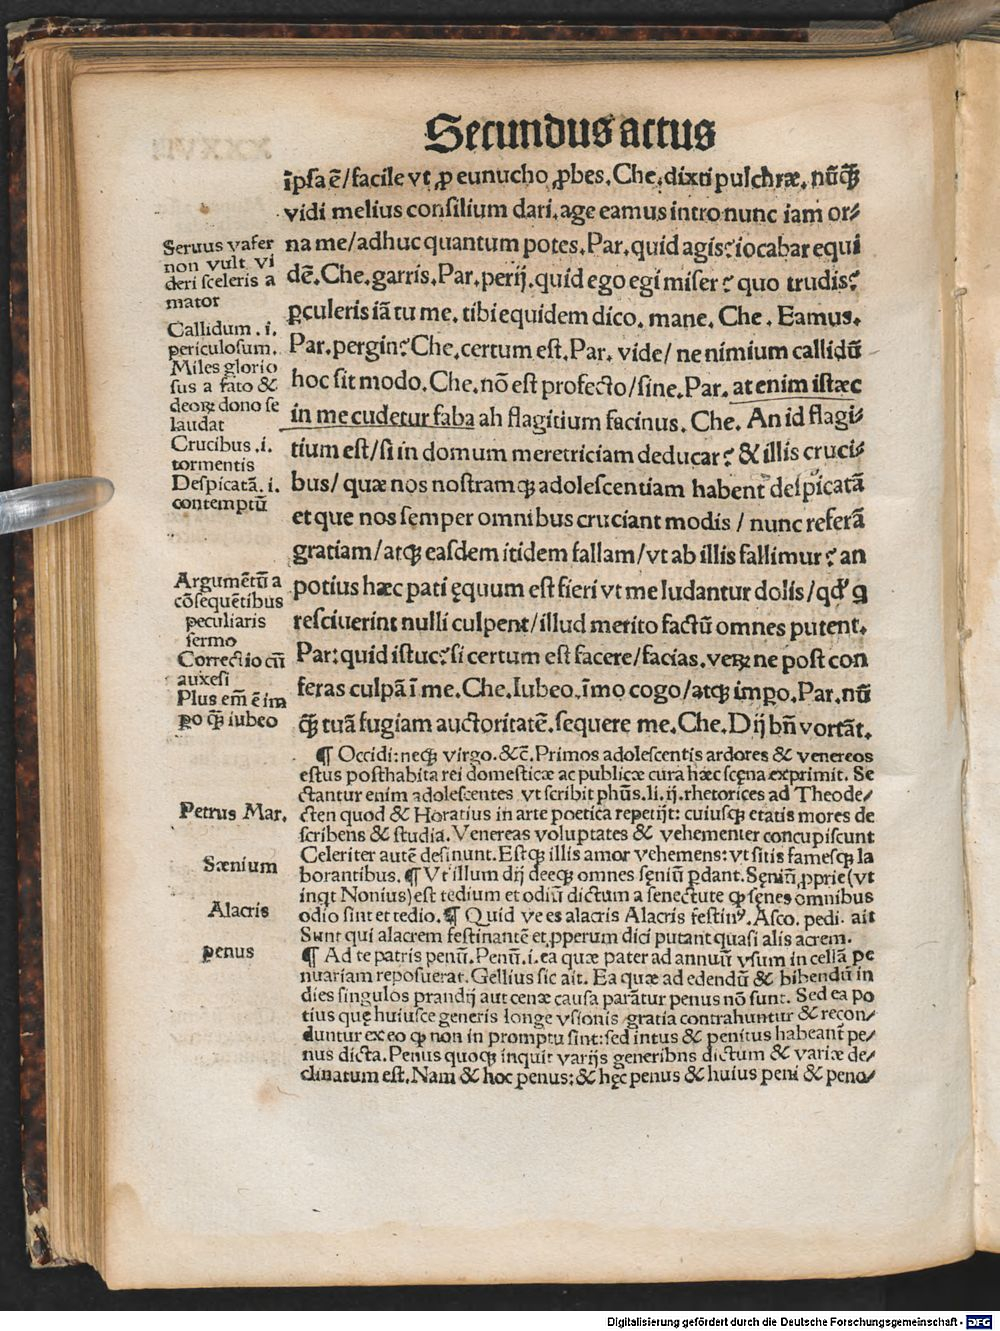 Secundus actus
ipsa ē/facile vt ꝓ eunucho ꝓbes. Che. dixti pulchræ. nūꝙ̄
vidi melius consilium dari. age eamus intro nunc iam or⸗
na me/adhuc quantum potes. Par. quid agis? iocabar equi
dē. Che. garris. Par. perij. quid ego egi miser? quo trudis?
ꝑculeris iā tu me. tibi equidem dico. mane. Che. Eamus.
Par. pergin? Che. certum est. Par. vide/ ne nimium callidū
hoc sit modo. Che. nō est profecto/sine. Par. at enim istæc
in me cudetur faba ah flagitium facinus. Che. An id flagi⸗
tium est/si in domum meretriciam deducar? & illis cruci⸗
bus/ quæ nos nostramqꝫ adolescentiam habent despicatā
et que nos semper omnibus cruciant modis / nunc referā
gratiam/atqꝫ easdem itidem fallam/vt ab illis fallimur? an
potius hæc pati ęquum est fieri vt me ludantur dolis/qď q
resciuerint nulli culpent/illud merito factū omnes putent.
Par: quid istuc? si certum est facere/facias. veꝝ ne post con
feras culpā ī me. Che. Iubeo. īmo cogo/atqꝫ impo. Par. nū
ꝙ̄ tuā fugiam auctoritatē. sequere me. Che. Dij bn̄ vortāt.
Seruus vafer
non vult vi
deri sceleris a
mator
Callidum . i.
periculosum.
Miles glorio
sus a fato &
deoꝝ dono se
laudat
Crucibus .i.
tormentis
Despicatā. i.
contemptū
Argumētū a
cōsequētibus
peculiaris
sermo
Correctio cū
auxesi
Plus em̄ ē im
ꝑo ꝙ̄ iubeo
¶ Occidi: neqꝫ virgo. &c̄. Primos adolescentis ardores & venereos
estus posthabita rei domesticæ ac publicæ cura hæc scęna exprimit. Se
ctantur enim adolescentes vt scribit phūs. li. ij. rhetorices ad Theode⸗
cten quod & Horatius in arte poetica repetijt: cuiusqꝫ etatis mores de
scribens & studia. Venereas voluptates & vehementer concupiscunt
Celeriter autē desinunt. Estqꝫ illis amor vehemens: vt sitis famesqꝫ la
borantibus. ¶ Vt illum dij deeqꝫ omnes sęniū ꝑdant. Sęniū ꝓprie (vt
inqt Nonius) est tedium et odiū dictum a senectute ꝙ sęnes omnibus
odio sint et tedio. ¶ Quid ve es alacris Alacris festinꝰ. Asco. pedi. ait
Sunt qui alacrem festinantē et ꝓperum dici putant quasi alis acrem.
¶ Ad te patris penū. Penū. i. ea quæ pater ad annuū vsum in cellā pe
nuariam reposuerat. Gellius sic ait. Ea quæ ad edendū & bibendū in
dies singulos prandij aut cenæ causa parātur penus nō sunt. Sed ea po
tius quę huiusce generis longe vsionis gratia contrahuntur & recon⸗
duntur ex eo ꝙ non in promptu sint: sed intus & penitus habeant pe⸗
nus dicta. Penus quoqꝫ inquit varijs generibns dictum & variæ de⸗
clinatum est. Nam & hoc penus: & hęc penus & huius peni & peno⸗
Petrus Mar.
Sænium
Alacris
penus
Digitalisierung gefördert durch die Deutsche Forschungsgemeinschaft - DFG